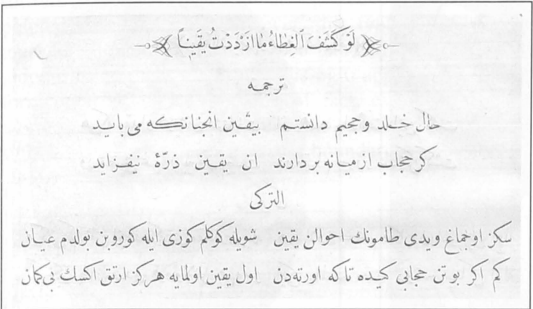 لَوْ كُشِفَ الغِطَاءُ مَا ازْدَدْتُ يَقِيناً
ترجمه
حال خلد وجحیم دانستم بیقین انچنانکه می باید
کر حجاب از میانه بردارند ان یقین ذرّهٔ نیفزاید
الترکی
سکز اوجماغ ویدی طامونك احوالن یقین شویله کوکلم کوزی ایله کوروبن بولدم عیان
کم اکر بو تن حجابی کیده تاکه اورته‌دن اول یقین اولمایه هرکز ارتق اکسك بی کمان